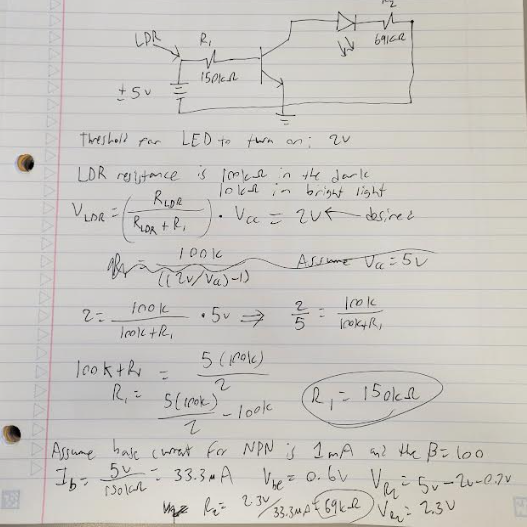 LDR
R₁
R₂
150kΩ
69kΩ
± 5v
Threshold for LED to turn on: 2v
LDR resistance is 100kΩ in the dark
10kΩ in bright light
V_LDR = (R_LDR / (R_LDR + R₁)) · Vcc = 2V ← desired
100k / ((2V/Vcc)-1) Assume Vcc = 5V
2 = 100k / (100k+R₁) · 5v ⇒ 2/5 = 100k / (100k+R₁)
100k + R₁ = 5(100k) / 2
R₁ = 5(100k) / 2 - 100k
R₁ = 150kΩ
Assume base current for NPN is 1mA and the β=100
I_b = 5v / 150kΩ = 33.3μA V_be = 0.6V V_R₂ = 5v - 2v - 0.7v
R₂ = 2.3V / 33.3μA = 69kΩ V_R₂ = 2.3V